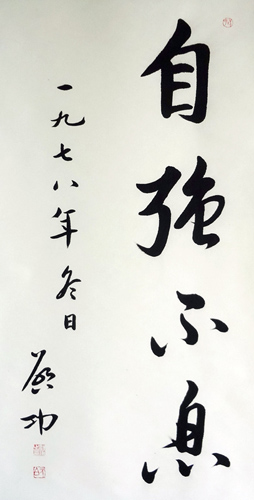 自強不息
一九七八年冬日
啟功